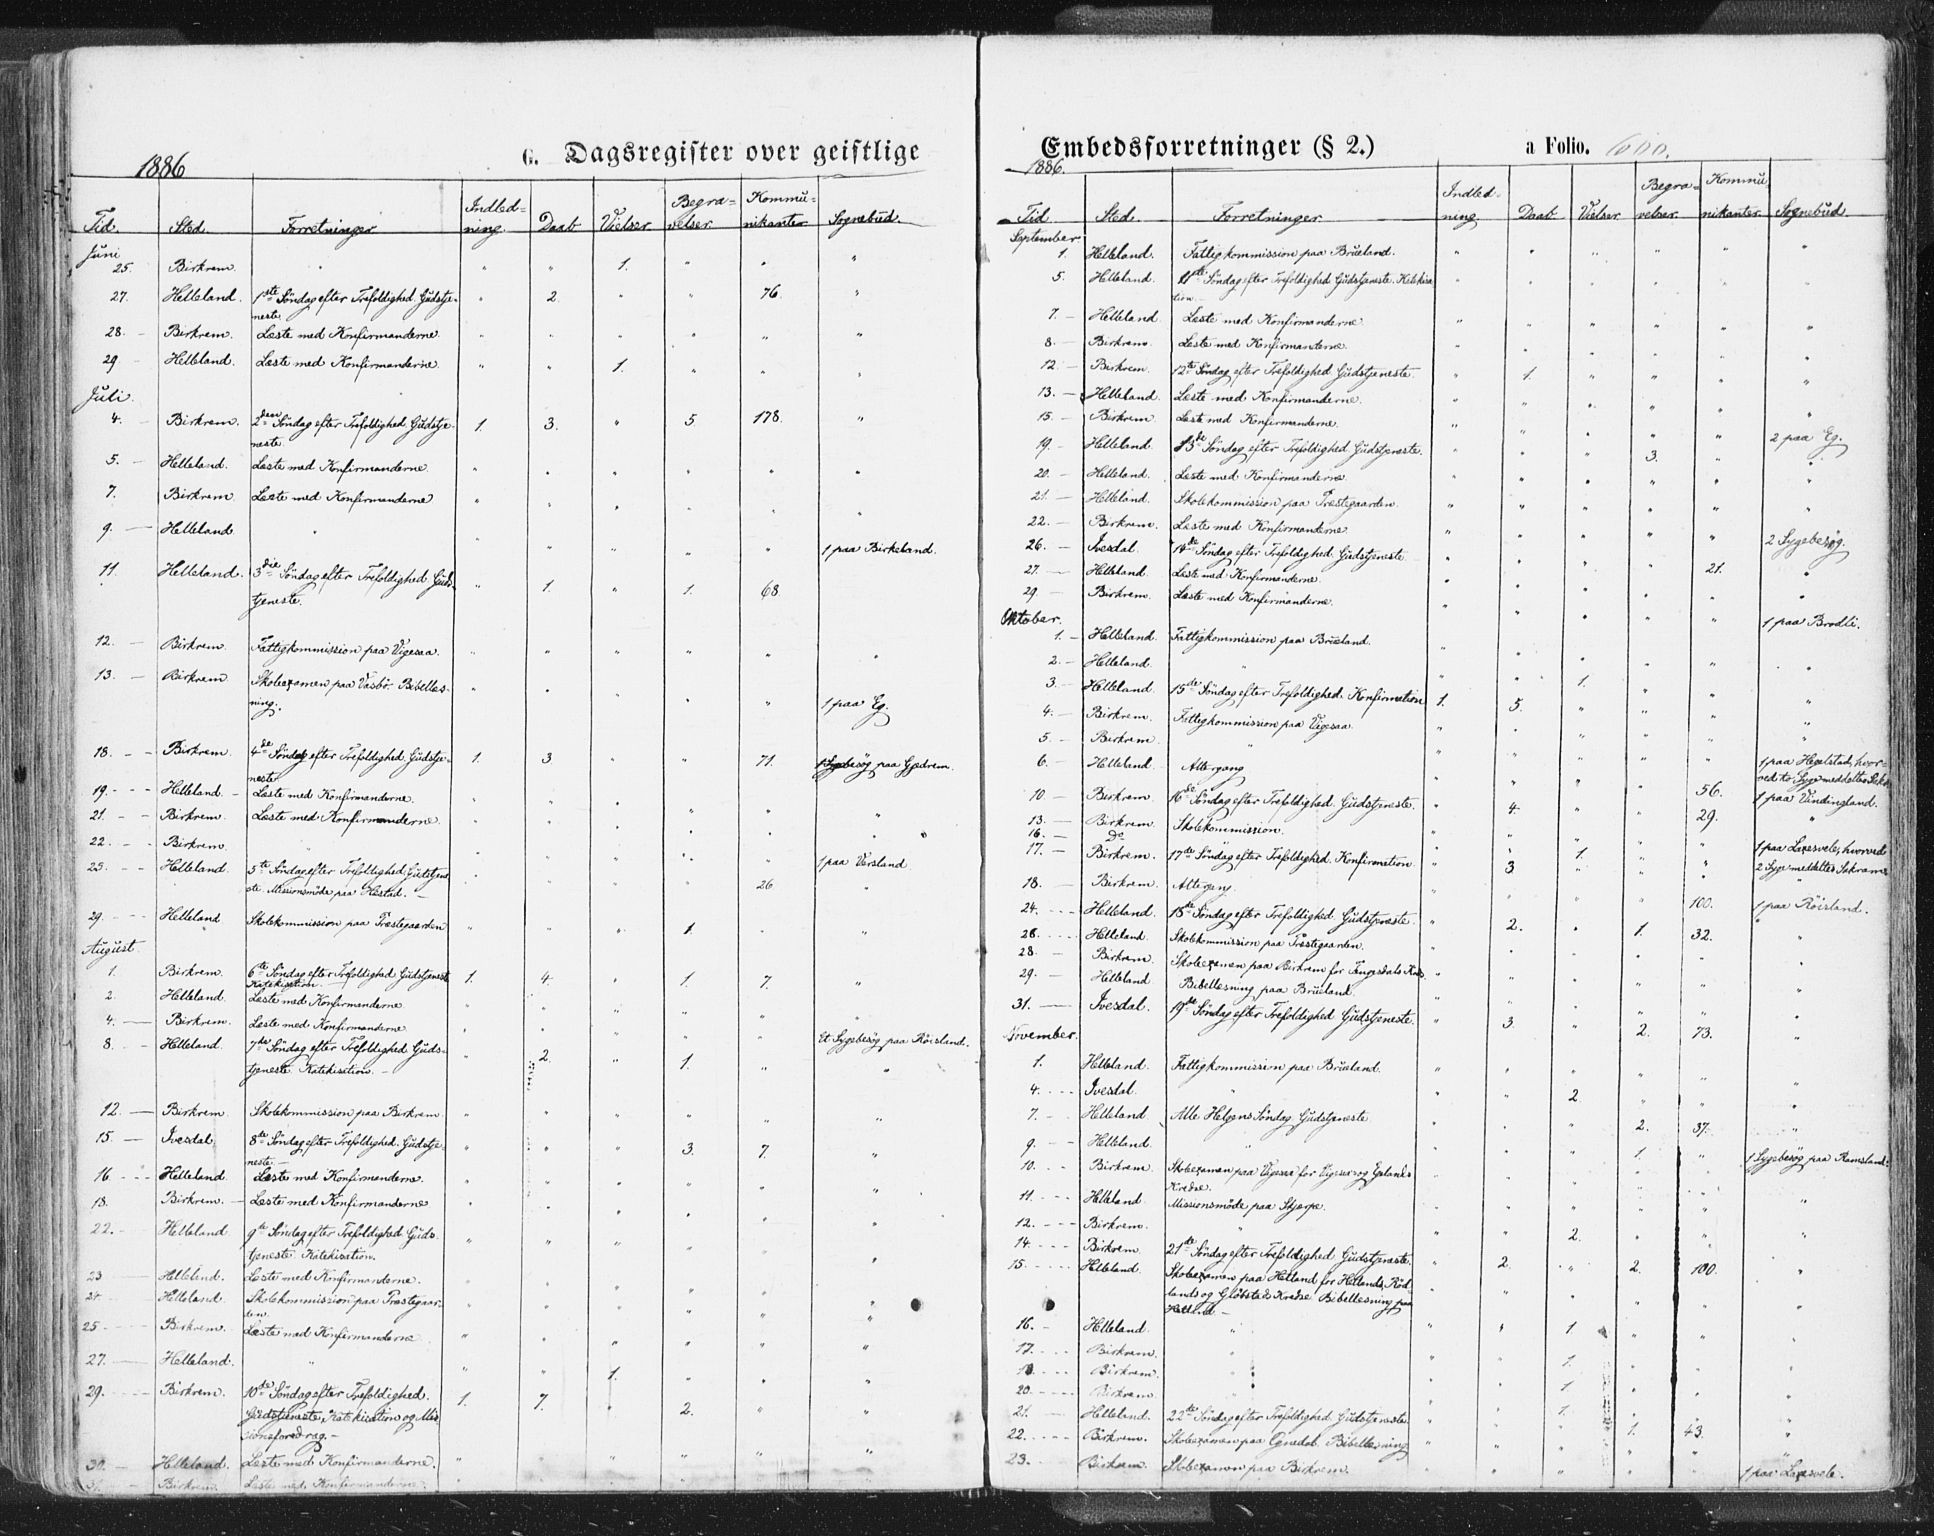 G. Dagsregister over geistlige
1886
Tid. Sted. Forretninger Indled=ning. Daab Vielser. Begra=velser. Kommu=nikanter Sognebud.
Juni
25. Birkrem. " " " 1. " " "
27. Helleland. 1ste Söndag efter Trefoldighed. Gudstje- " 2. " " 76. "
neste
28. — Birkrem. Læste med Konfirmanderne " " " " " "
29 — Helleland. Læste med Konfirmanderne " " 1. " " "
Juli.
4. — Birkrem. 2den Söndag efter Trefoldighed. Gudstje- 1. 3. " 5. 178. "
neste.
5. — Helleland. Læste med Konfirmanderne " " " " " "
7. Birkrem. Læste med Konfirmanderne " " " " " "
9. — Helleland " " " " " " 1 paa Birkeland.
11. Helleland. 3die Söndag efter Trefoldighed. Guds- " 1. " 1. 68.
tjeneste.
12. — Birkrem. Fattigkommission paa Vigesaa. " " " " " "
13. — Birkrem Skoleexamen paa Vasbö. Bibellæs- " " " " " 1 paa Eg.
ning.
18. — Birkrem 4de Söndag efter Trefoldighed. Gudstje- 1. 3 " " 71. 1 Sygebesög paa Gjedrem.
neste
19. — Helleland. — Læste med Konfirmanderne. " " " " " "
21. — Birkrem. Læste med Konfirmanderne. " " " " " "
22. — Birkrem. " " " " " " 1 paa Versland
25. — Helleland. 5te Söndag efter Trefoldighed Gudstjene " " " " 26 "
ste. Missionsmöde paa Hestad. —
29. — Helleland Skolekommission paa Præstegaarden " " " 1. " "
August.
1. Birkrem. 6te Söndag efter Trefoldighed Gudstjeneste 1. 4. " 1. 7. "
Katekisation. —
2. Helleland. Læste med Konfirmanderne " " " " " "
4. — Birkrem. Læste med Konfirmanderne " " " " " Et Sygebesög paa Röisland.
8. — Helleland. 7de Söndag efter Trefoldighed Guds- " 2. " 1. " "
tjeneste. Katekisation. —
12. — Birkrem. Skolekommission paa Birkrem " " " " " "
15. — Ivesdal. 8de Söndag efter Trefoldighed. Gudstje- " " " 3. 7. "
neste —
16 — Helleland. Læste med Konfirmanderne. " " " " " "
18. Birkrem. — Læste med Konfirmanderne " " " " " "
22. — Helleland 9de Söndag efter Trefoldighed Guds- " " " " " "
tjeneste. Katekisation.
23 — Helleland. Læste med Konfirmanderne. " " " " " "
24. — Helleland Skolekommission paa Præstegaar- " " " " " "
den
25 — Birkrem. Læste med Konfirmanderne " " " " " "
27. — Helleland. " " " 1. " " "
29. — Birkrem. 10de Söndag efter Trefoldighed. 1. 7. " 2. " "
Gudstjeneste, Katekisation og Mis-
sionsforedrag. —
30. — Helleland. Læste med Konfirmanderne. " " " " " "
31. — Birkrem. Læste med Konfirmanderne.
Embedsforretninger (§ 2.) a Folio.
1886.
Tid. Sted. Forretninger Indled=ning Daab Vielser Begra=velser. Kommu=nikanter. Sognebud.
September.
1. Helleland. Fattigkommission paa Brueland. " " " " " "
5. Helleland. 11te Söndag efter Trefoldighed Gudstjeneste. Katekisa " " " " " "
tion —
7. — Helleland Læste med Konfirmanderne " " " " " "
8. — Birkrem. Læste med Konfirmanderne. " " " " " "
12. — Birkrem. 12te Söndag efter Trefoldighed Gudstjeneste. " 1. " " " "
13. — Helleland. Læste med Konfirmanderne. " " " " " "
15. — Birkrem Læste med Konfirmanderne. " " " " " 2 paa Eg.
19. — Helleland. 13de Söndag efter Trefoldighed Gudstjeneste. " " " 3. " "
20. — Helleland. Læste med Konfirmanderne. " " " " " "
21. — Helleland. Skolekommission paa Præstegaarden. " " " " " "
22. — Birkrem. Læste med Konfirmanderne. " " " " " 2 Sygebesög.
26. — Ivesdal. 14de Söndag efter Trefoldighed. Gudstjeneste — " " " " 21. "
27. — Helleland. Læste med Konfirmanderne. " " " " " "
29. — Birkrem. Læste med Konfirmanderne. " " " " " 1 paa Brodli.
Oktober.
1. — Helleland. Fattigkommission paa Brueland. " " " " " "
2. — Helleland. " " " 1. " " "
3. — Helleland 15de Söndag efter Trefoldighed. Konfirmation 1. 5. " " " "
4. — Birkrem. Fattigkommission paa Vigesaa. " " " " " "
5. — Birkrem. " " " " " " 1 paa Hegelstad, hvor-
6. — Helleland. Altergang " " " " 56. 1 paa Vindingland.
10. — Birkrem. 16de Söndag efter Trefoldighed Gudstjeneste. " 4. " " 29. "
13. — Birkrem. Skolekommission.
16. — Do " " 1. " " 1 paa Laxesvele, hvorved
17. — Birkrem. 17de Söndag efter Trefoldighed Konfirmation. " 3 " " " 2 Syge meddeltes Sakram
18. — Birkrem. Altergang. " " " " 100. 1 paa Röisland.
24. — Helleland. 18de Söndag efter Trefoldighed. Gudstjeneste. " 2. " 1. 32. "
26. — Helleland. Skolekommission paa Præstegaarden. " " " " " "
28. — Birkrem. Skoleexamen paa Birkrem for Tengesdals Kreds. " " " " " "
29. — Helleland Bibellæsning paa Brueland. " " " " " "
31. — Ivesdal. 19de Söndag efter Trefoldighed Gudstjeneste. " 3. " 2. 73. "
November.
1. Helleland. Fattigkommission paa Brueland. " " " " " "
4. — Ivesdal. " " " 2 " " "
7. — Helleland Alle Helgens Söndag Gudstjeneste " " " 2. 37. "
9. — Helleland. " " " " 1. " 1 Sygebesög paa Ramsland.
10. — Birkrem. Skoleexamen paa Vigesaa for Vigesaa og Gylands " " " " " "
Kredse.
11. — Helleland. Missionsmöde paa Skjerpe. " " " " " "
12. — Birkrem. " " " 2. " " "
14. — Birkrem. 21de Söndag efter Trefoldighed Gudstjeneste. " 2. " 2. 100. "
15. — Helleland. Skoleexamen paa Helland for Hellands, Röd- " " " " " "
lands og Glöbsteds Kredse Bibellæsning paa
Helland —
16. — Helleland. " " " 1 " " "
17. — Birkrem. " " " 1. " " "
18. — Birkrem. " " " 1. " " "
20. — Birkrem. " " " 1. " " "
21. — Helleland. 22de Söndag efter Trefoldighed. Gudstjeneste. " " " 1. 43. "
22. — Birkrem. Skoleexamen paa Ognedal. Bibellæsning " " " " " "
23. — Birkrem Skoleexamen paa Birkrem. " " " " " 1 paa Laxesvele.